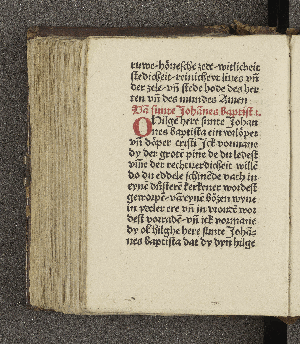 ruwe·hönesche zede·witlicheit
stedicheit·reinicheit sines vñ
der zele·vñ stede hode des her
ten vñ des mundes Amen
Vā sunte Johānes baptistē.
O Hilge here sunte Johan
nes baptista ein vorlöper
vñ döper cristi Jck vormane
dy der grote pine de du ledest
vm̄e der rechtuerdicheit willē
do du eddele schinēde vath in
eynē dūsterē kerkener wordest
geworpē·vā eynē bözen wyue
in ydeler ere vñ in vrouwē wor
dest vorradē·vñ ick vormane
dy ok hilghe here sunte Johā-
nes Baptista dat dy dyn hilge